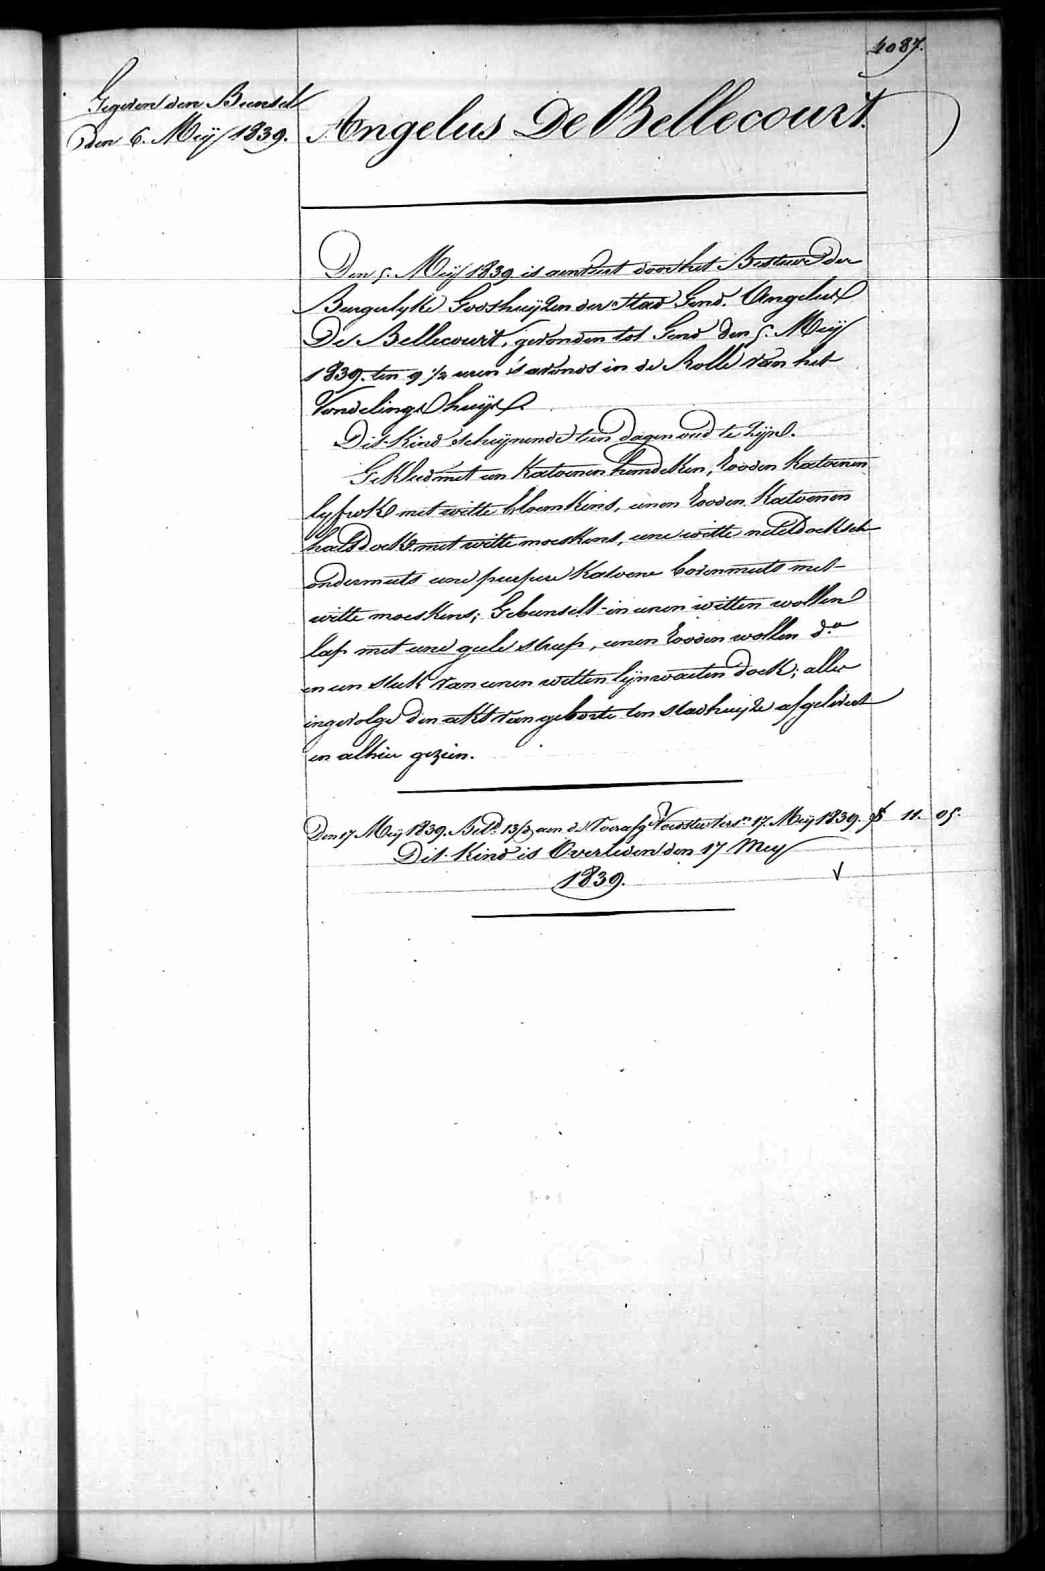 4087.
Gegeven den Bunsel
den 6. Meÿ 1839.
Angelus De Bellecourt.
Den 5. Meÿ 1839 is aenveert door het Bestuer der
Burgerlyke Godshuÿzen der Stad Gend. Angelus
De Bellecourt, gevonden tot Gend den 5. Meÿ
1839. ten 9 1/2 uren 's avonds in de Rolle van het
Vondelings huÿs.
Dit Kind scheÿnende tien dagen oud te zÿn.
Gekleed met een Katoenen hemdeken, rooden Katoenen
lyfrok met witte bloemkens, eenen rooden Katoenen
halsdoek met witte moeskens, eene witte neteldoeksch
ondermuts eene purpere Katoene bovenmuts met
witte moeskens; Gebunselt in eenen witten wollen
lap met eene geele streep, eenen rooden wollen do
en een stuk van eenen witten lÿnwaeten doek; alles
ingevolge den akt van geboorte ten stadhuÿze afgelevert
en alhier gezien.
Den 17 Meÿ 1839. Betd. 13/2 aen de Voorafg Voedster ters. 17. Meÿ 1839. 11. 05.
Dit Kind is Overleden den 17 Meÿ
1839.